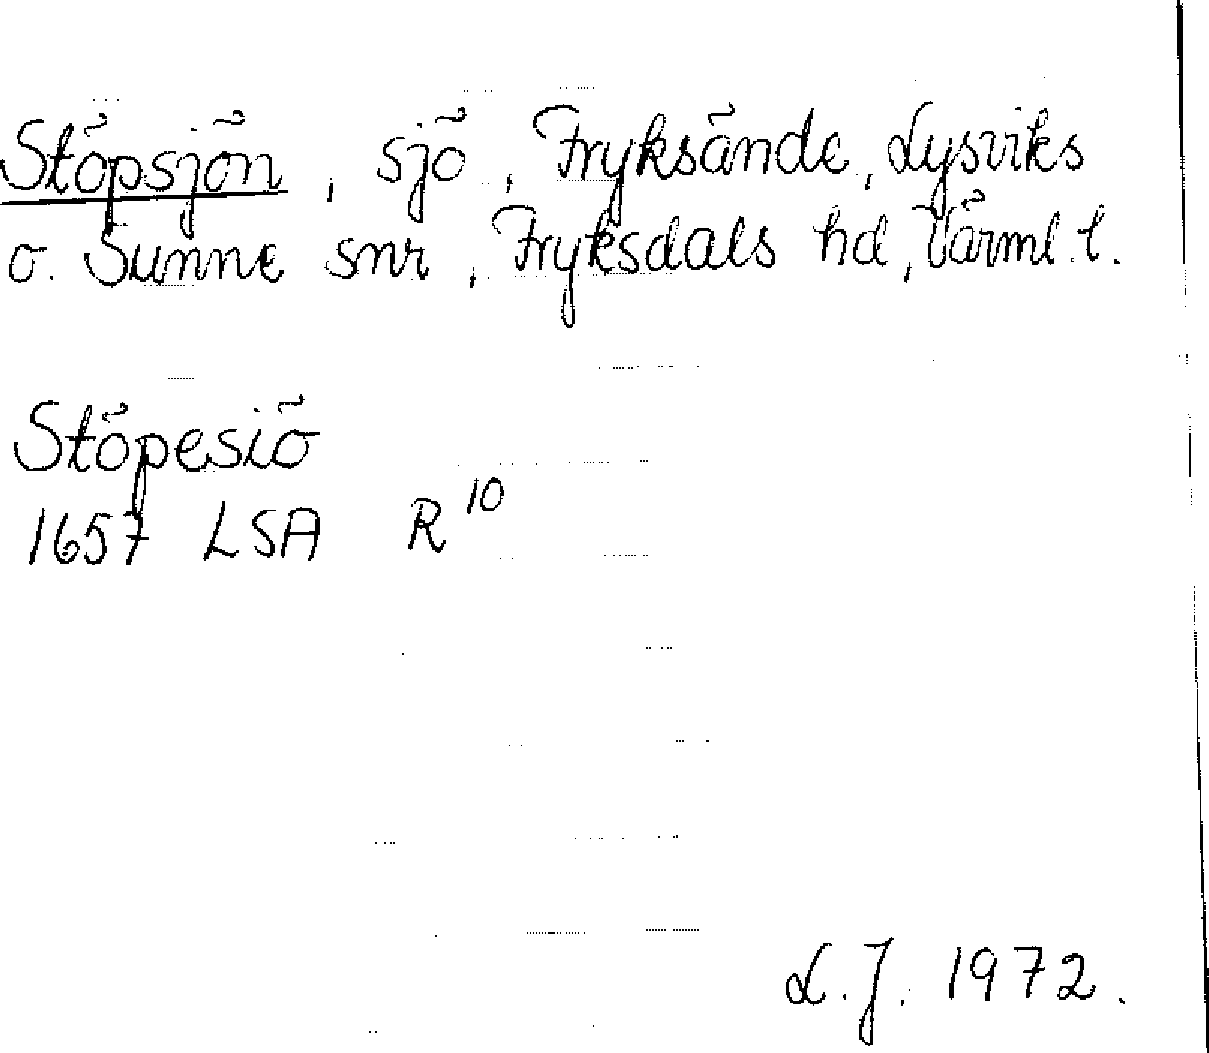 Stöpsjön, sjö, Fryksände, Lysviks
o. Sunne snr, Fryksdals hd, Värml. l.
Stöpesiö
1657 LSA R 10
L.J. 1972.